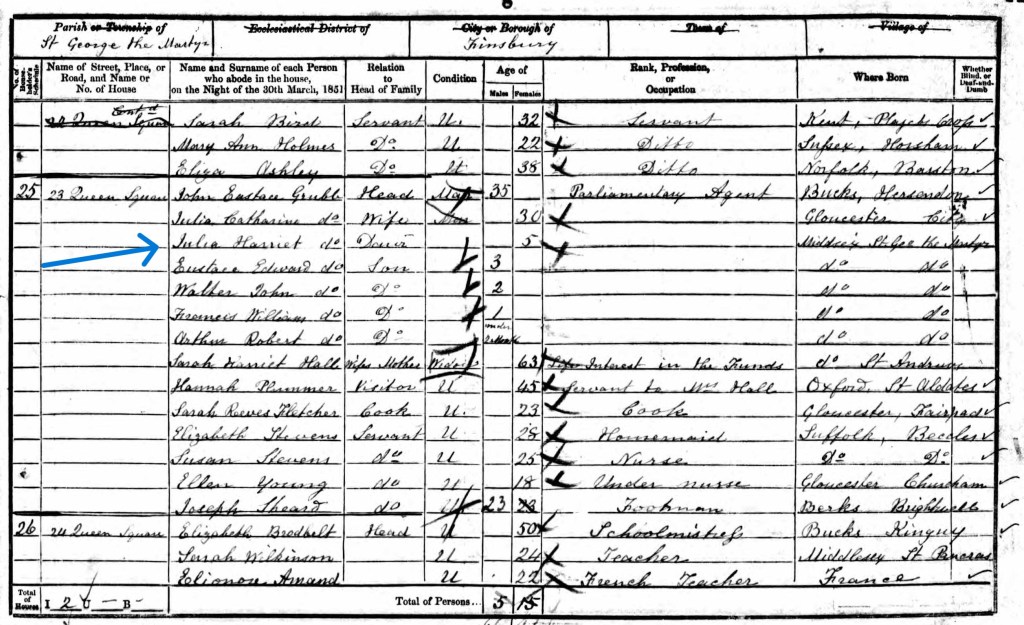 8
Parish or Township of Ecclesiastical District of City or Borough of Town of Village of
St George the Martyr Finsbury
No. of Householder's Schedule Name of Street, Place, or Road, and Name or No. of House Name and Surname of each Person who abode in the house, on the Night of the 30th March, 1851 Relation to Head of Family Condition Age of Males Females Rank, Profession, or Occupation Where Born Whether Blind, or Deaf-and-Dumb
Contd Queen Square Sarah Bird Servant U. 32 Servant Kent,
Mary Ann Holmes Do U 22 Ditto Sussex, Horsham
Eliza Ashley Do U 38 Ditto Norfolk, Barston
25 23 Queen Square John Eustace Grubb Head Mar 35 Parliamentary Agent Bucks, Horsendon
Julia Catharine do Wife Mar 30 Gloucester City
Julia Harriet do Daur 5 Middsix St Geo the Martyr
Eustace Edward do Son 3 do do
Walter John do Do 2 do do
Francis William do Do 1 do do
Arthur Robert do Do under do do
Sarah Harriet Hall Wifes Mother Widow 63 Interest in the Funds do St Andrew
Hannah Plummer Visitor U 45 Servant to Mrs Hall Oxford, St Aldates
Sarah Reeves Fletcher Cook U. 23 Cook Gloucester,
Elizabeth Stevens Servant U 28 Housemaid Suffolk, Beccles
Susan Stevens do U 25 Nurse Do Do
Ellen Young do U 18 Under nurse Gloucester Churcham
Joseph Sheard do U 23 Footman Berks Brightwell
26 24 Queen Square Elizabeth Brodbelt Head U 50 Schoolmistress Bucks
Sarah Wilkinson U 24 Teacher Middlesex St Pancras
Elionore Amand U 22 French Teacher France
Total of Houses I 2 U - B - Total of Persons... 5 15